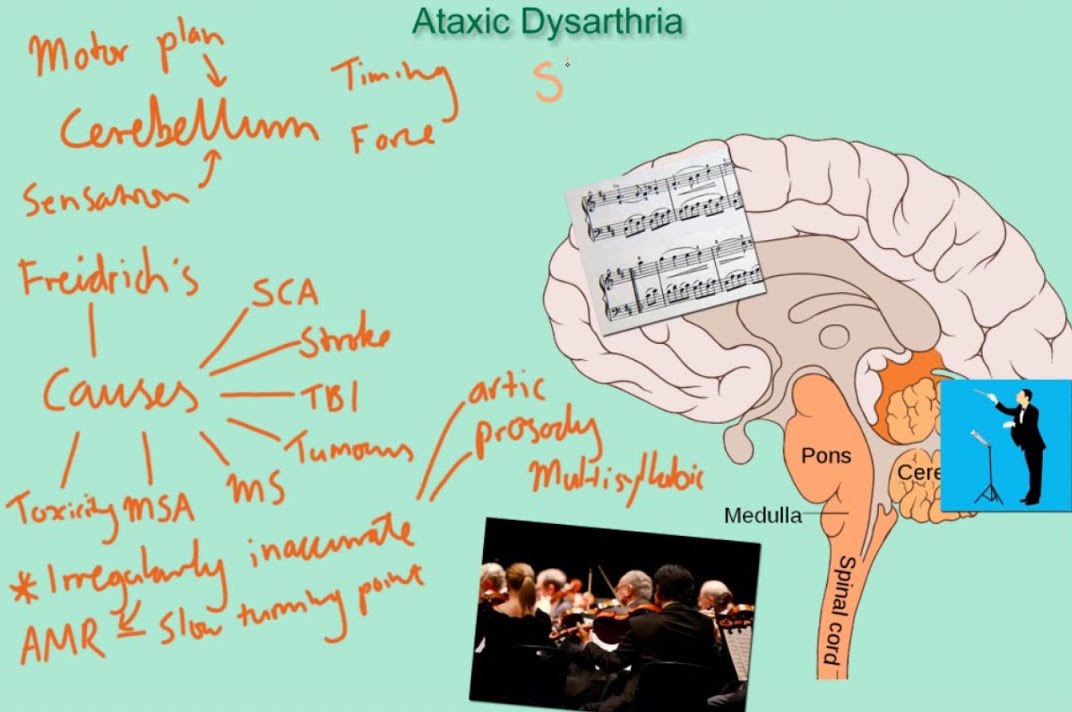 Ataxic Dysarthria
Motor plan
Cerebellum
Sensation
Timing
Force
S
Freidrich's
SCA
Stroke
Causes
TBI
Tumours
MS
MSA
Toxicity
artic
prosody
Multisyllabic
* Irregularly inaccurate
AMR slow turning point
Pons
Cere
Medulla
Spinal cord